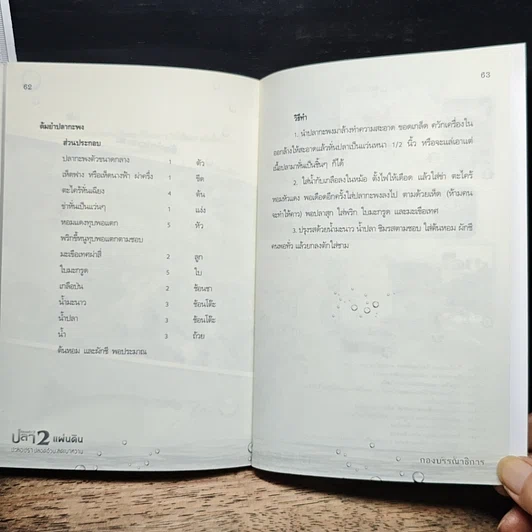 62
ต้มยำปลากะพง
ส่วนประกอบ
ปลากะพงตัวขนาดกลาง 1 ตัว
เห็ดฟาง หรือเห็ดนางฟ้า ผ่าครึ่ง 1 ขีด
ตะไคร้หั่นเฉียง 4 ต้น
ข่าหั่นเป็นแว่นๆ 1 แง่ง
หอมแดงทุบพอแตก 5 หัว
พริกขี้หนูทุบพอแตกตามชอบ
มะเขือเทศผ่าสี่ 2 ลูก
ใบมะกรูด 5 ใบ
เกลือป่น 2 ช้อนชา
น้ำมะนาว 3 ช้อนโต๊ะ
น้ำปลา 3 ช้อนโต๊ะ
น้ำ 3 ถ้วย
ต้นหอม และผักชี พอประมาณ
ปลา 2 แผ่นดิน
63
วิธีทำ
1. นำปลากะพงมาล้างทำความสะอาด ขอดเกล็ด ควักเครื่องใน
ออกล้างให้สะอาดแล้วหั่นปลาเป็นแว่นหนา 1/2 นิ้ว หรือจะแล่เอาแต่
เนื้อปลามาหั่นเป็นชิ้นๆ ก็ได้
2. ใส่น้ำกับเกลือลงในหม้อ ตั้งไฟให้เดือด แล้วใส่ข่า ตะไคร้
หอมแดง พอเดือดอีกครั้งใส่ปลากะพงลงไป ตามด้วยเห็ด (ห้ามคน
จะทำให้คาว) พอปลาสุก ใส่พริก ใบมะกรูด และมะเขือเทศ
3. ปรุงรสด้วยน้ำมะนาว น้ำปลา ชิมรสตามชอบ ใส่ต้นหอม ผักชี
คนพอทั่ว แล้วยกลงตักใส่ชาม
กองบรรณาธิการ